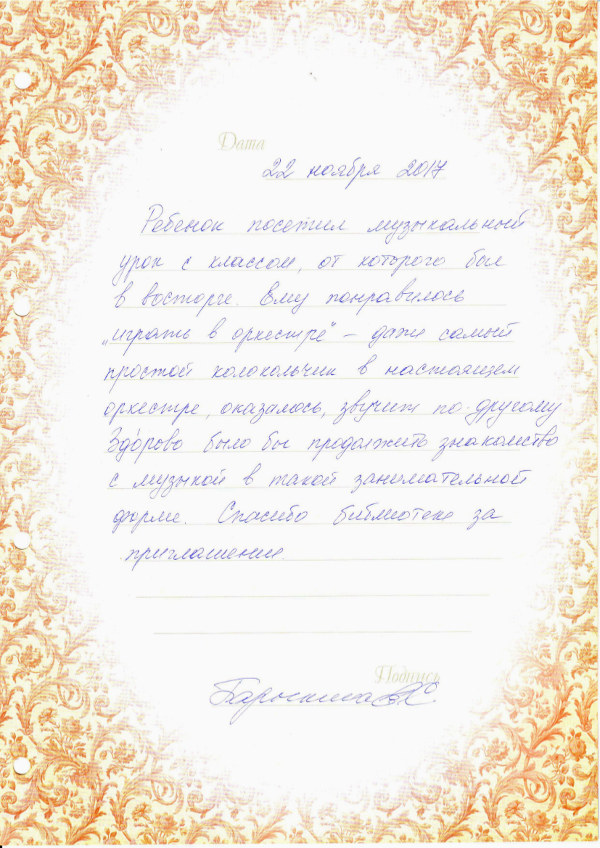 Дата
22 ноября 2017
Ребенок посетил музыкальный
урок с классом, от которого был
в восторге. Ему понравилось
„играть в оркестре" – даже самый
простой колокольчик в настоящем
оркестре, оказалось, звучит по-другому
Здо́рово было бы продолжить знакомство
с музыкой в такой занимательной
форме. Спасибо библиотеке за
приглашение.
Подпись